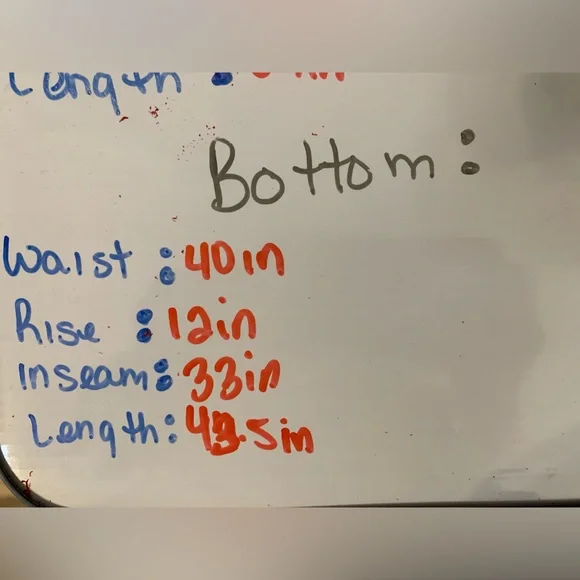 Length :
Bottom :
Waist : 40in
Rise : 12in
inseam: 33in
Length: 43.5in